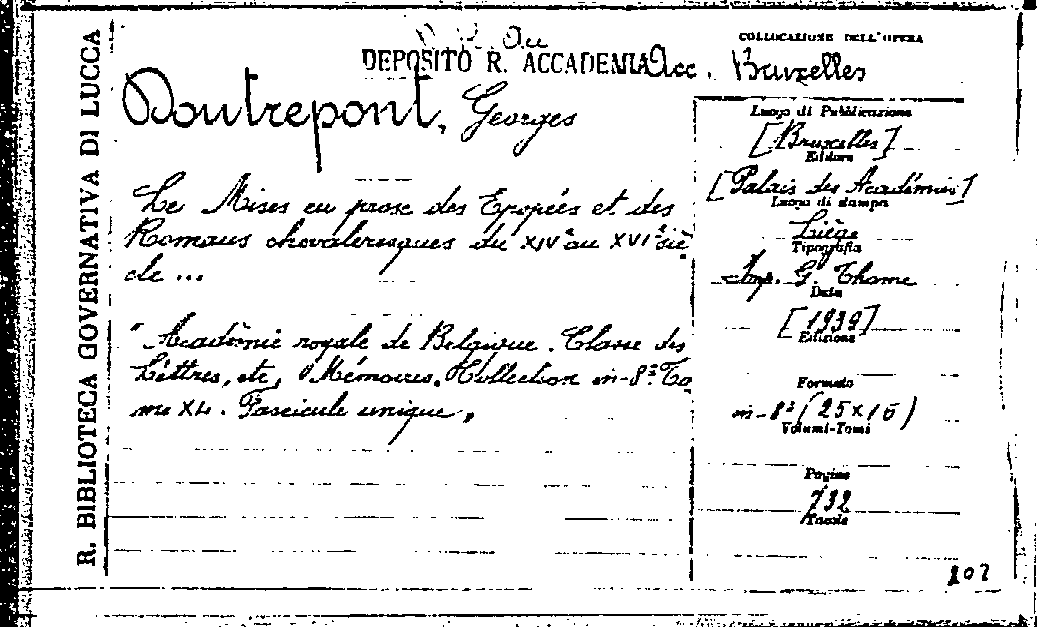 R. BIBLIOTECA GOVERNATIVA DI LUCCA
DEPOSITO R. ACCADEMIA Acc. Bruxelles
COLLOCAZIONE DELL'OPERA
Doutrepont, Georges
Le Mises en prose des Epopées et des
Romans chevaleresques du XIVe au XVIe siè
cle ...
"Académie royale de Belgique. Classe des
Lettres, etc, Mémoires. Collection in-8º To
me XL. Fascicule unique"
Luogo di Pubblicazione
[Bruxelles]
Editore
[Palais des Académies]
Luogo di stampa
Liège
Tipografia
Imp. G. Thone
Data
[1939]
Edizione
Formato
in-8º (25x16)
Volumi-Tomi
Pagine
732
Tavole